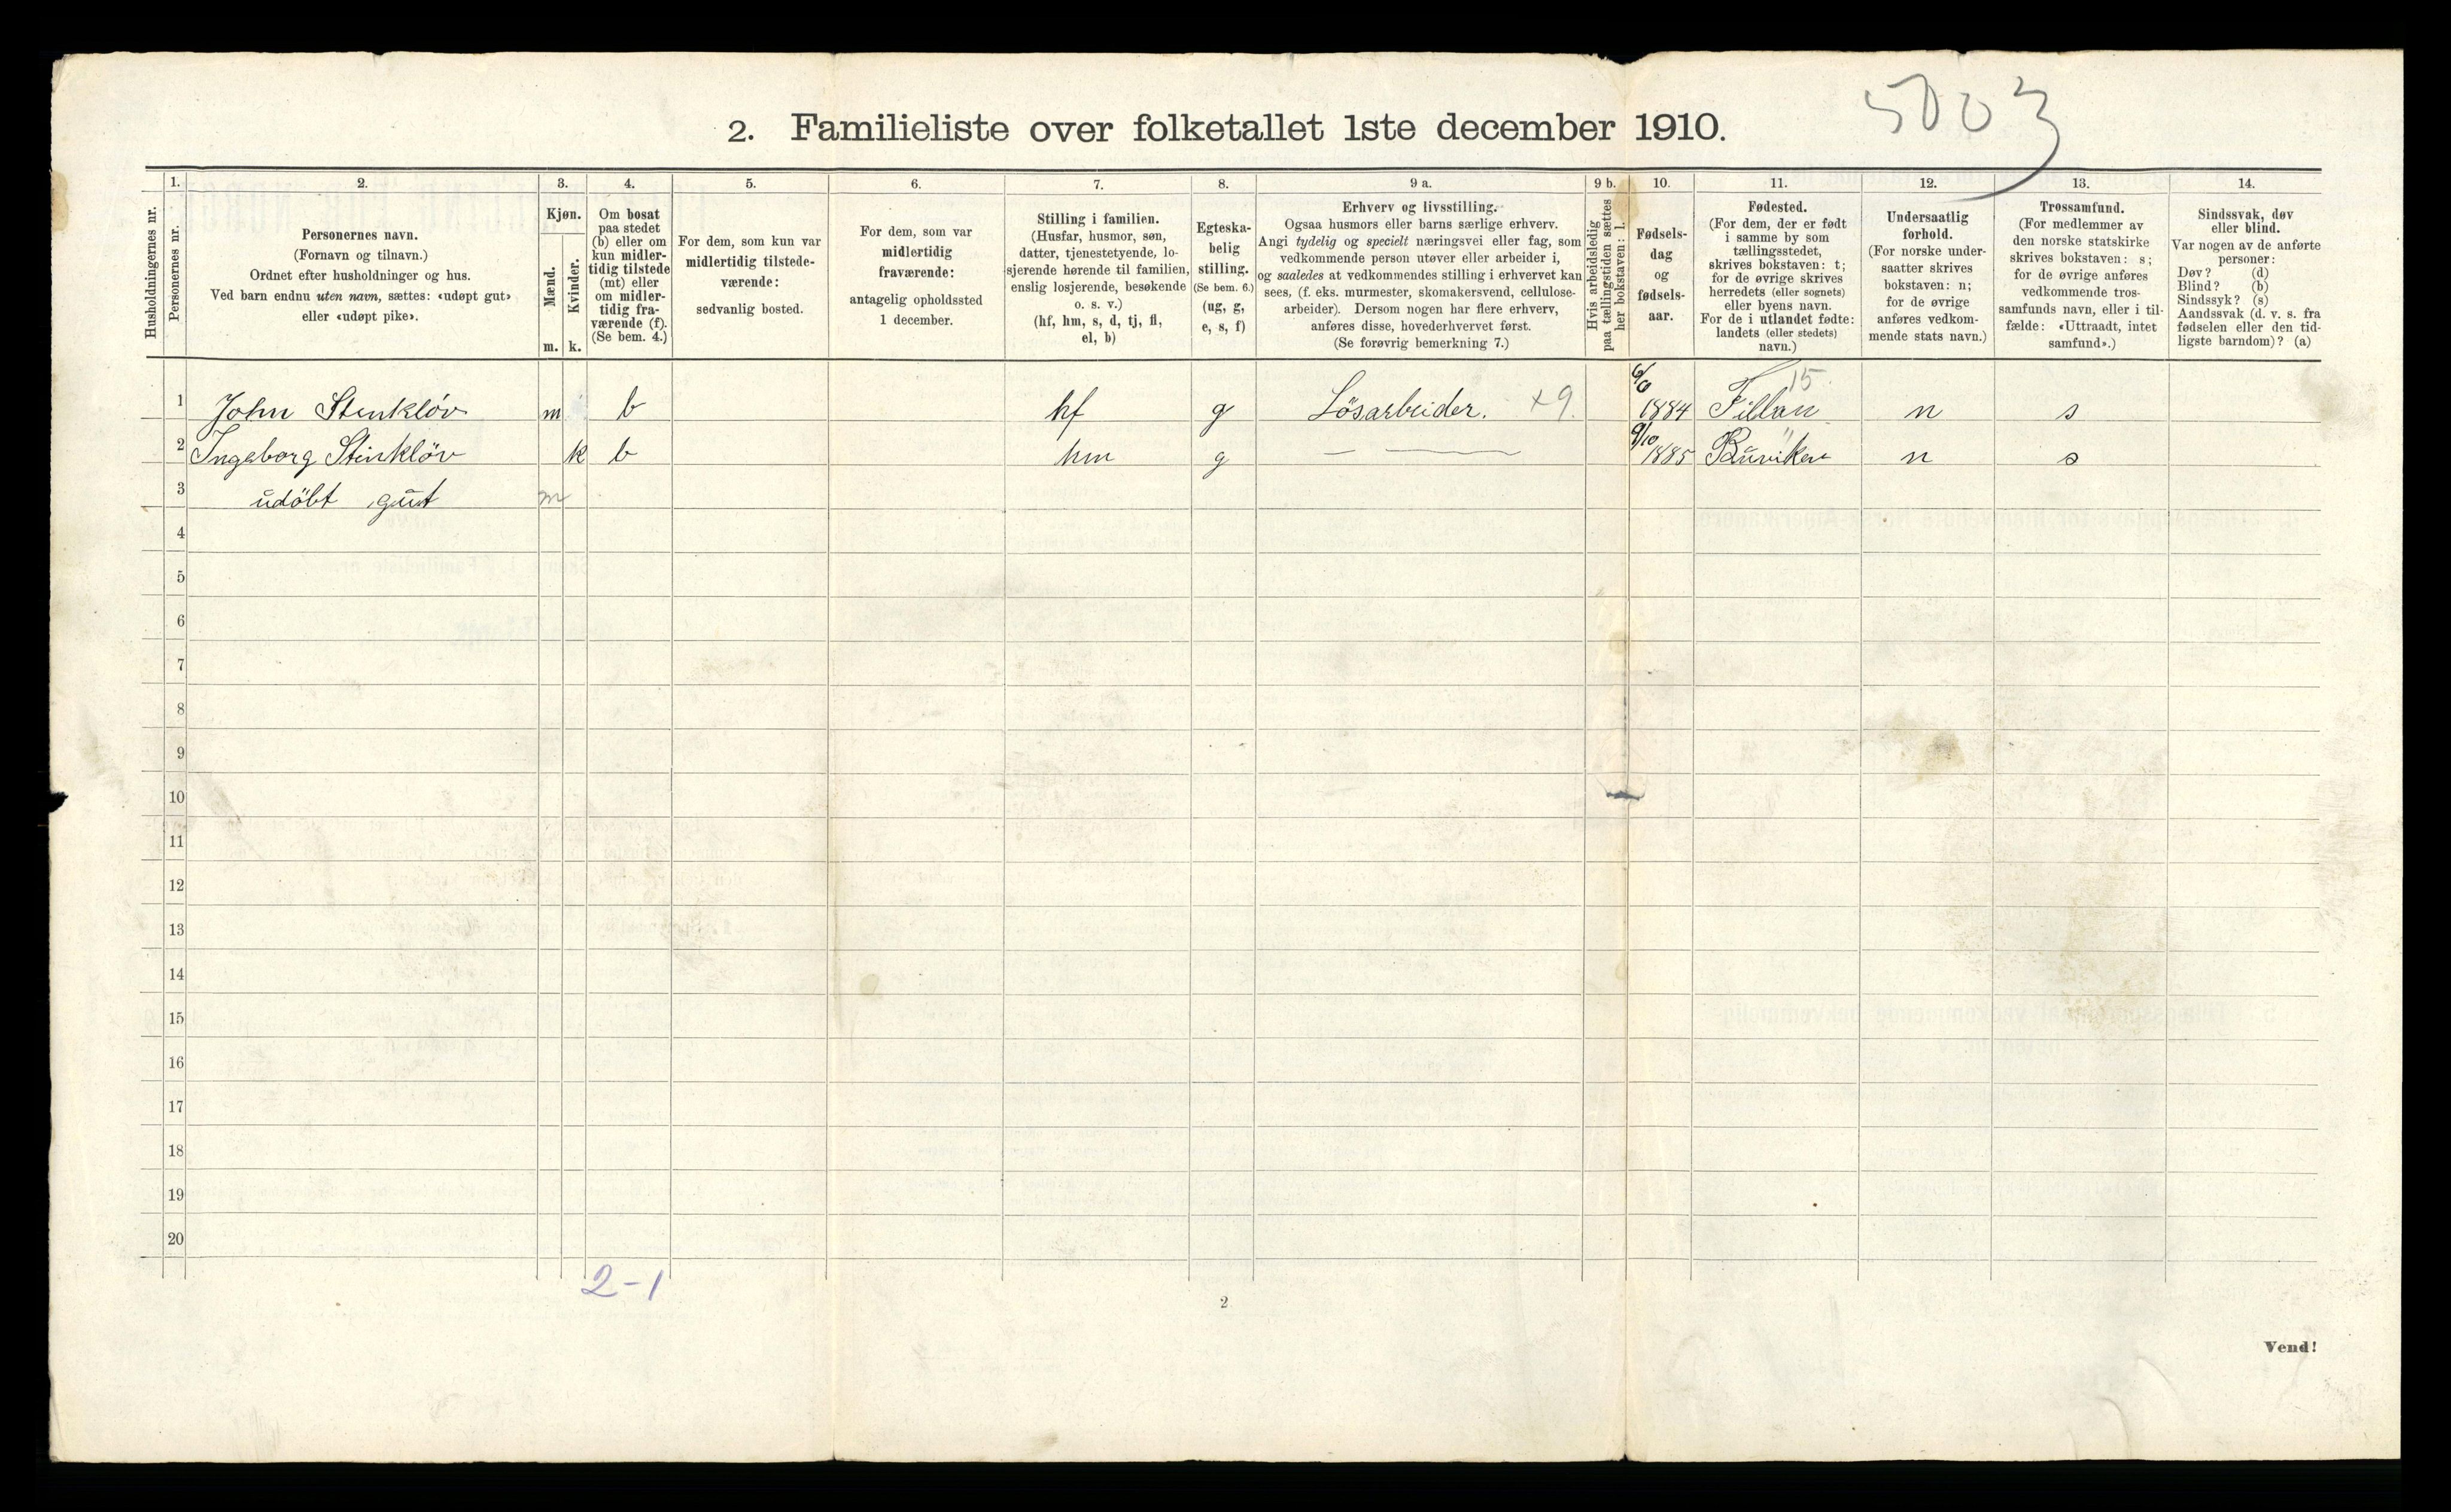 5003
2. Familieliste over folketallet 1ste december 1910.
1. 2. 3. 4. 5. 6. 7. 8. 9 a. 9 b. 10. 11. 12. 13. 14.
Husholdningernes nr.
Personernes nr.
Personernes navn.
(Fornavn og tilnavn.)
Ordnet efter husholdninger og hus.
Ved barn endnu uten navn, sættes: «udøpt gut»
eller «udøpt pike».
Kjøn.
Mænd.
Kvinder.
m. k.
Om bosat
paa stedet
(b) eller om
kun midler-
tidig tilstede
(mt) eller
om midler-
tidig fra-
værende (f).
(Se bem. 4.)
For dem, som kun var
midlertidig tilstede-
værende:
sedvanlig bosted.
For dem, som var
midlertidig
fraværende:
antagelig opholdssted
1 december.
Stilling i familien.
(Husfar, husmor, søn,
datter, tjenestetyende, lo-
sjerende hørende til familien,
enslig losjerende, besøkende
o. s. v.)
(hf, hm, s, d, tj, fl,
el, b)
Egteska-
belig
stilling.
(Se bem. 6.)
(ug, g,
e, s, f)
Erhverv og livsstilling.
Ogsaa husmors eller barns særlige erhverv.
Angi tydelig og specielt næringsvei eller fag, som
vedkommende person utøver eller arbeider i,
og saaledes at vedkommendes stilling i erhvervet kan
sees, (f. eks. murmester, skomakersvend, cellulose-
arbeider). Dersom nogen har flere erhverv,
anføres disse, hovederhvervet først.
(Se forøvrig bemerkning 7.)
Hvis arbeidsledig
paa tællingstiden sættes
her bokstaven: l.
Fødsels-
dag
og
fødsels-
aar.
Fødested.
(For dem, der er født
i samme by som
tællingsstedet,
skrives bokstaven: t;
for de øvrige skrives
herredets (eller sognets)
eller byens navn.
For de i utlandet fødte:
landets (eller stedets)
navn.)
Undersaatlig
forhold.
(For norske under-
saatter skrives
bokstaven: n;
for de øvrige
anføres vedkom-
mende stats navn.)
Trossamfund.
(For medlemmer av
den norske statskirke
skrives bokstaven: s;
for de øvrige anføres
vedkommende tros-
samfunds navn, eller i til-
fælde: «Uttraadt, intet
samfund».)
Sindssvak, døv
eller blind.
Var nogen av de anførte
personer:
Døv? (d)
Blind? (b)
Sindssyk? (s)
Aandssvak (d. v. s. fra
fødselen eller den tid-
ligste barndom)? (a)
1 John Stenkløv m b hf g Lösarbeider. x9. 1884 Fillan 15. n s
2 Ingeborg Stinkløv k b hm g — — 9/10 1885 Buviken " n s
3 udöbt gut m
4
5
6
7
8
9
10
11
12
13
14
15
16
17
18
19
20
2-1
2
Vend!